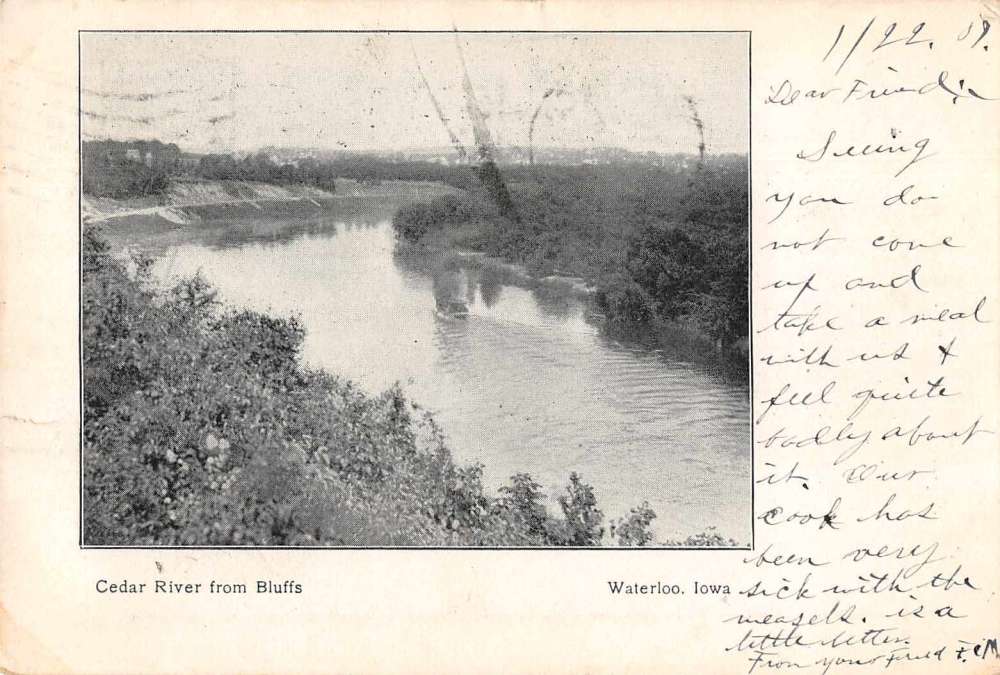 1/22. 07.
Dear Friend;
Seeing
you do
not come
up and
take a meal
with us &
feel quite
badly about
it. Our
cook has
been very
sick with the
measels. is a
little better.
From your Friend F.C.M
Cedar River from Bluffs
Waterloo, Iowa